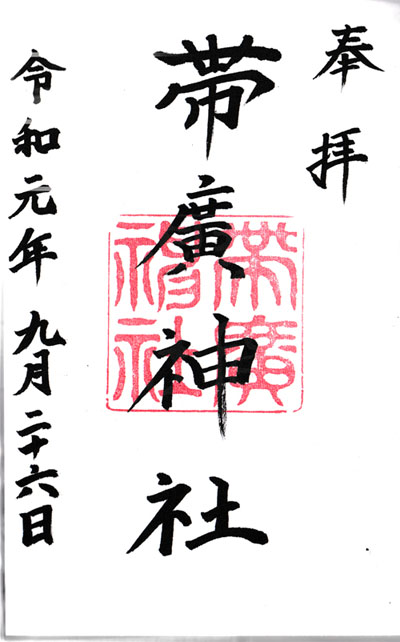 奉拝
帯廣神社
帯廣
神社
令和元年九月二十六日